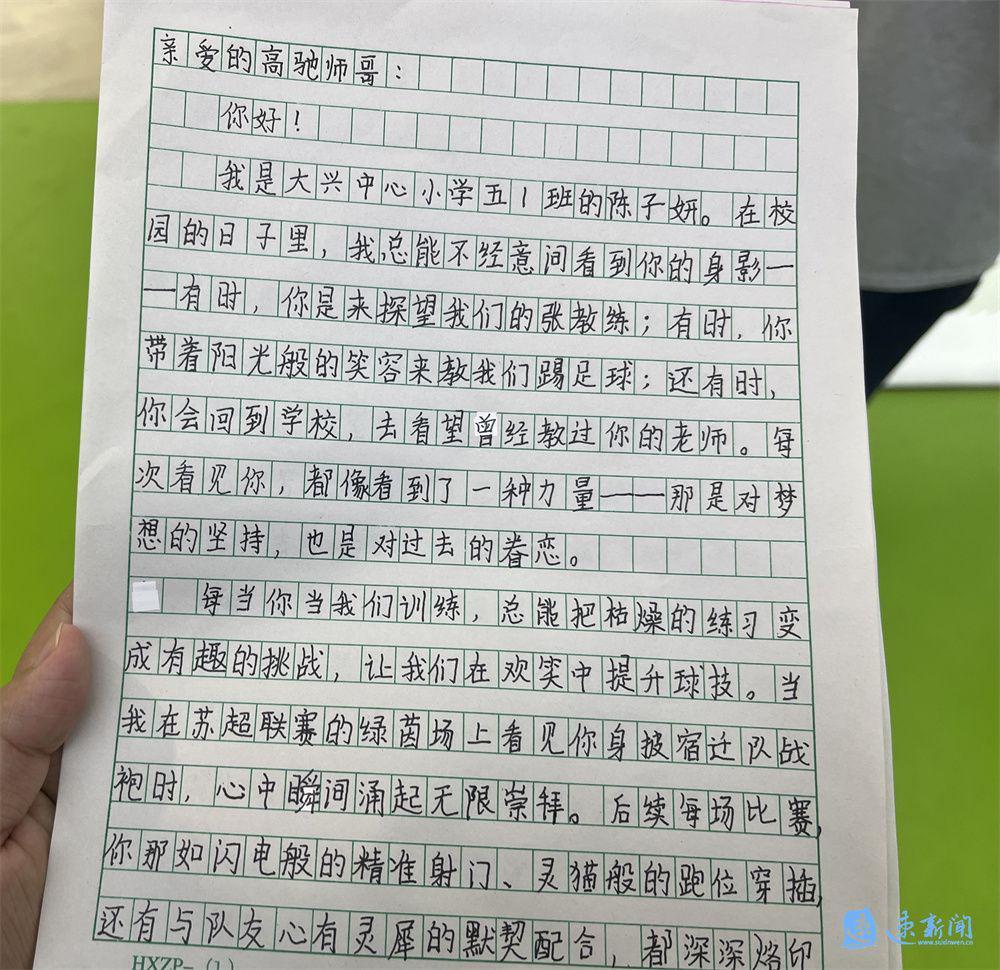 亲爱的高驰师哥：
你好！
我是大兴中心小学五1班的陈子妍。在校
园的日子里，我总能不经意间看到你的身影—
—有时，你是来探望我们的张教练；有时，你
带着阳光般的笑容来教我们踢足球；还有时，
你会回到学校，去看望曾经教过你的老师。每
次看见你，都像看到了一种力量——那是对梦
想的坚持，也是对过去的眷恋。
每当你当我们训练，总能把枯燥的练习变
成有趣的挑战，让我们在欢笑中提升球技。当
我在苏超联赛的绿茵场上看见你身披宿迁队战
袍时，心中瞬间涌起无限崇拜。后续每场比赛，
你那如闪电般的精准射门、灵猫般的跑位穿插，
还有与队友心有灵犀的默契配合，都深深烙印
HXZP-（1）
速新闻
www.suxinwen.cn